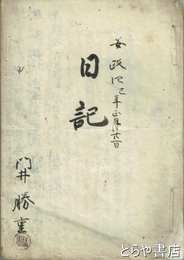 安政四巳年正月廿六日
日記
門井勝重
とらや書店